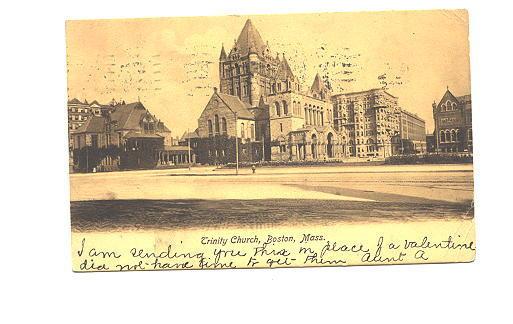 Trinity Church, Boston, Mass.
I am sending you this in place of a valentine
did not have time to get them Aunt A